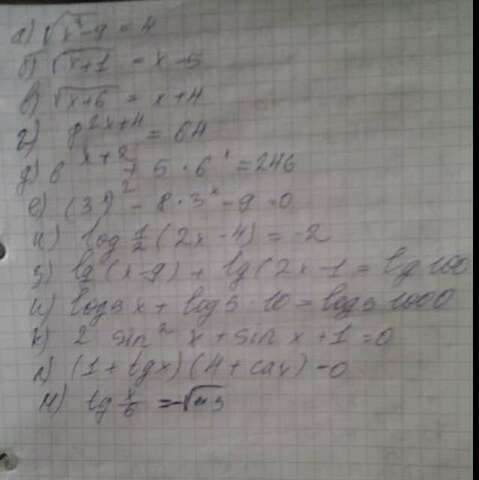 а) √x²-9 = 4
б) √x+1 = x-5
в) √x+6 = x+4
г) 8^2x+4 = 64
д) 6^x+2 + 5·6^x = 246
е) (3^x)² - 8·3^x - 9 = 0
log 1/2 (2x-4) = -2
з) lg(x-9) + lg(2x-1 = lg 100
и) log5 x + log5 10 = log5 1000
к) 2 sin² x + sin x + 1 = 0
л) (1+tgx)(4+cosx) = 0
м) tg x/6 =